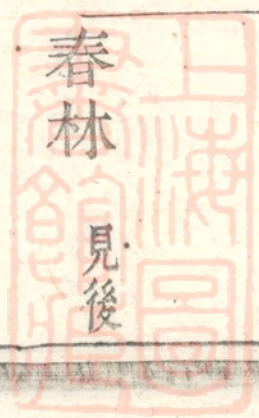 春林 見後
上海圖
書館藏